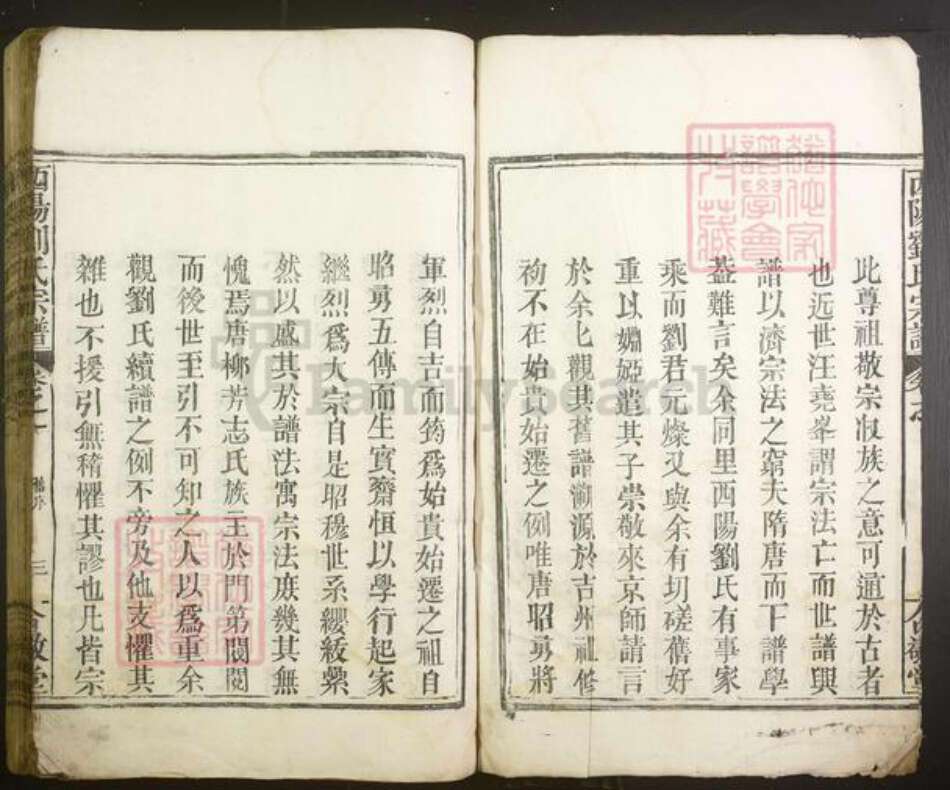 酉陽劉氏宗譜
合敬堂
此尊祖敬宗收族之意可通於古者
也近世汪堯峯謂宗法亡而世譜興
譜以濟宗法之窮夫隋唐而下譜學
蓋難言矣余同里酉陽劉氏有事家
乘而劉君元燦又與余有切磋舊好
重以婣婭遣其子崇敬來京師請言
於余乞觀其舊譜溯源於吉州祖脩
礿不在始貴始遷之例唯唐昭勇將
軍烈自吉而筠爲始貴始遷之祖自
昭勇五傳而生實齋恒以學行起家
繼烈爲大宗自是昭穆世系纓紱縈
然以盛其於譜法寓宗法庶幾其無
愧焉唐柳芳志氏族主於門第閥閱
而後世至引不可知之人以爲重余
觀劉氏續譜之例不旁及他支懼其
雜也不援引無稽懼其謬也凡皆宗
酉陽劉氏宗譜
三
合敬堂
FamilySearch